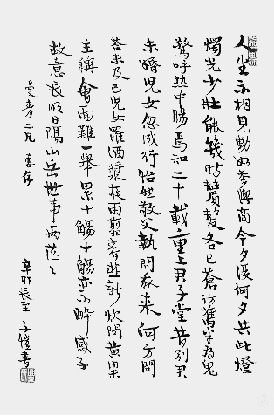 人生不相見動如參與商今夕復何夕共此燈
燭光少壯能幾時鬢髮各已蒼訪舊半為鬼
驚呼熱中腸焉知二十載重上君子堂昔別君
未婚兒女忽成行怡然敬父執問我來何方問
答未及已兒女羅酒漿夜雨翦春韭新炊間黃粱
主稱會面難一舉累十觴十觴亦不醉感子
故意長明日隔山岳世事兩茫〻
兄 惠存
辛卯長至 子愷書